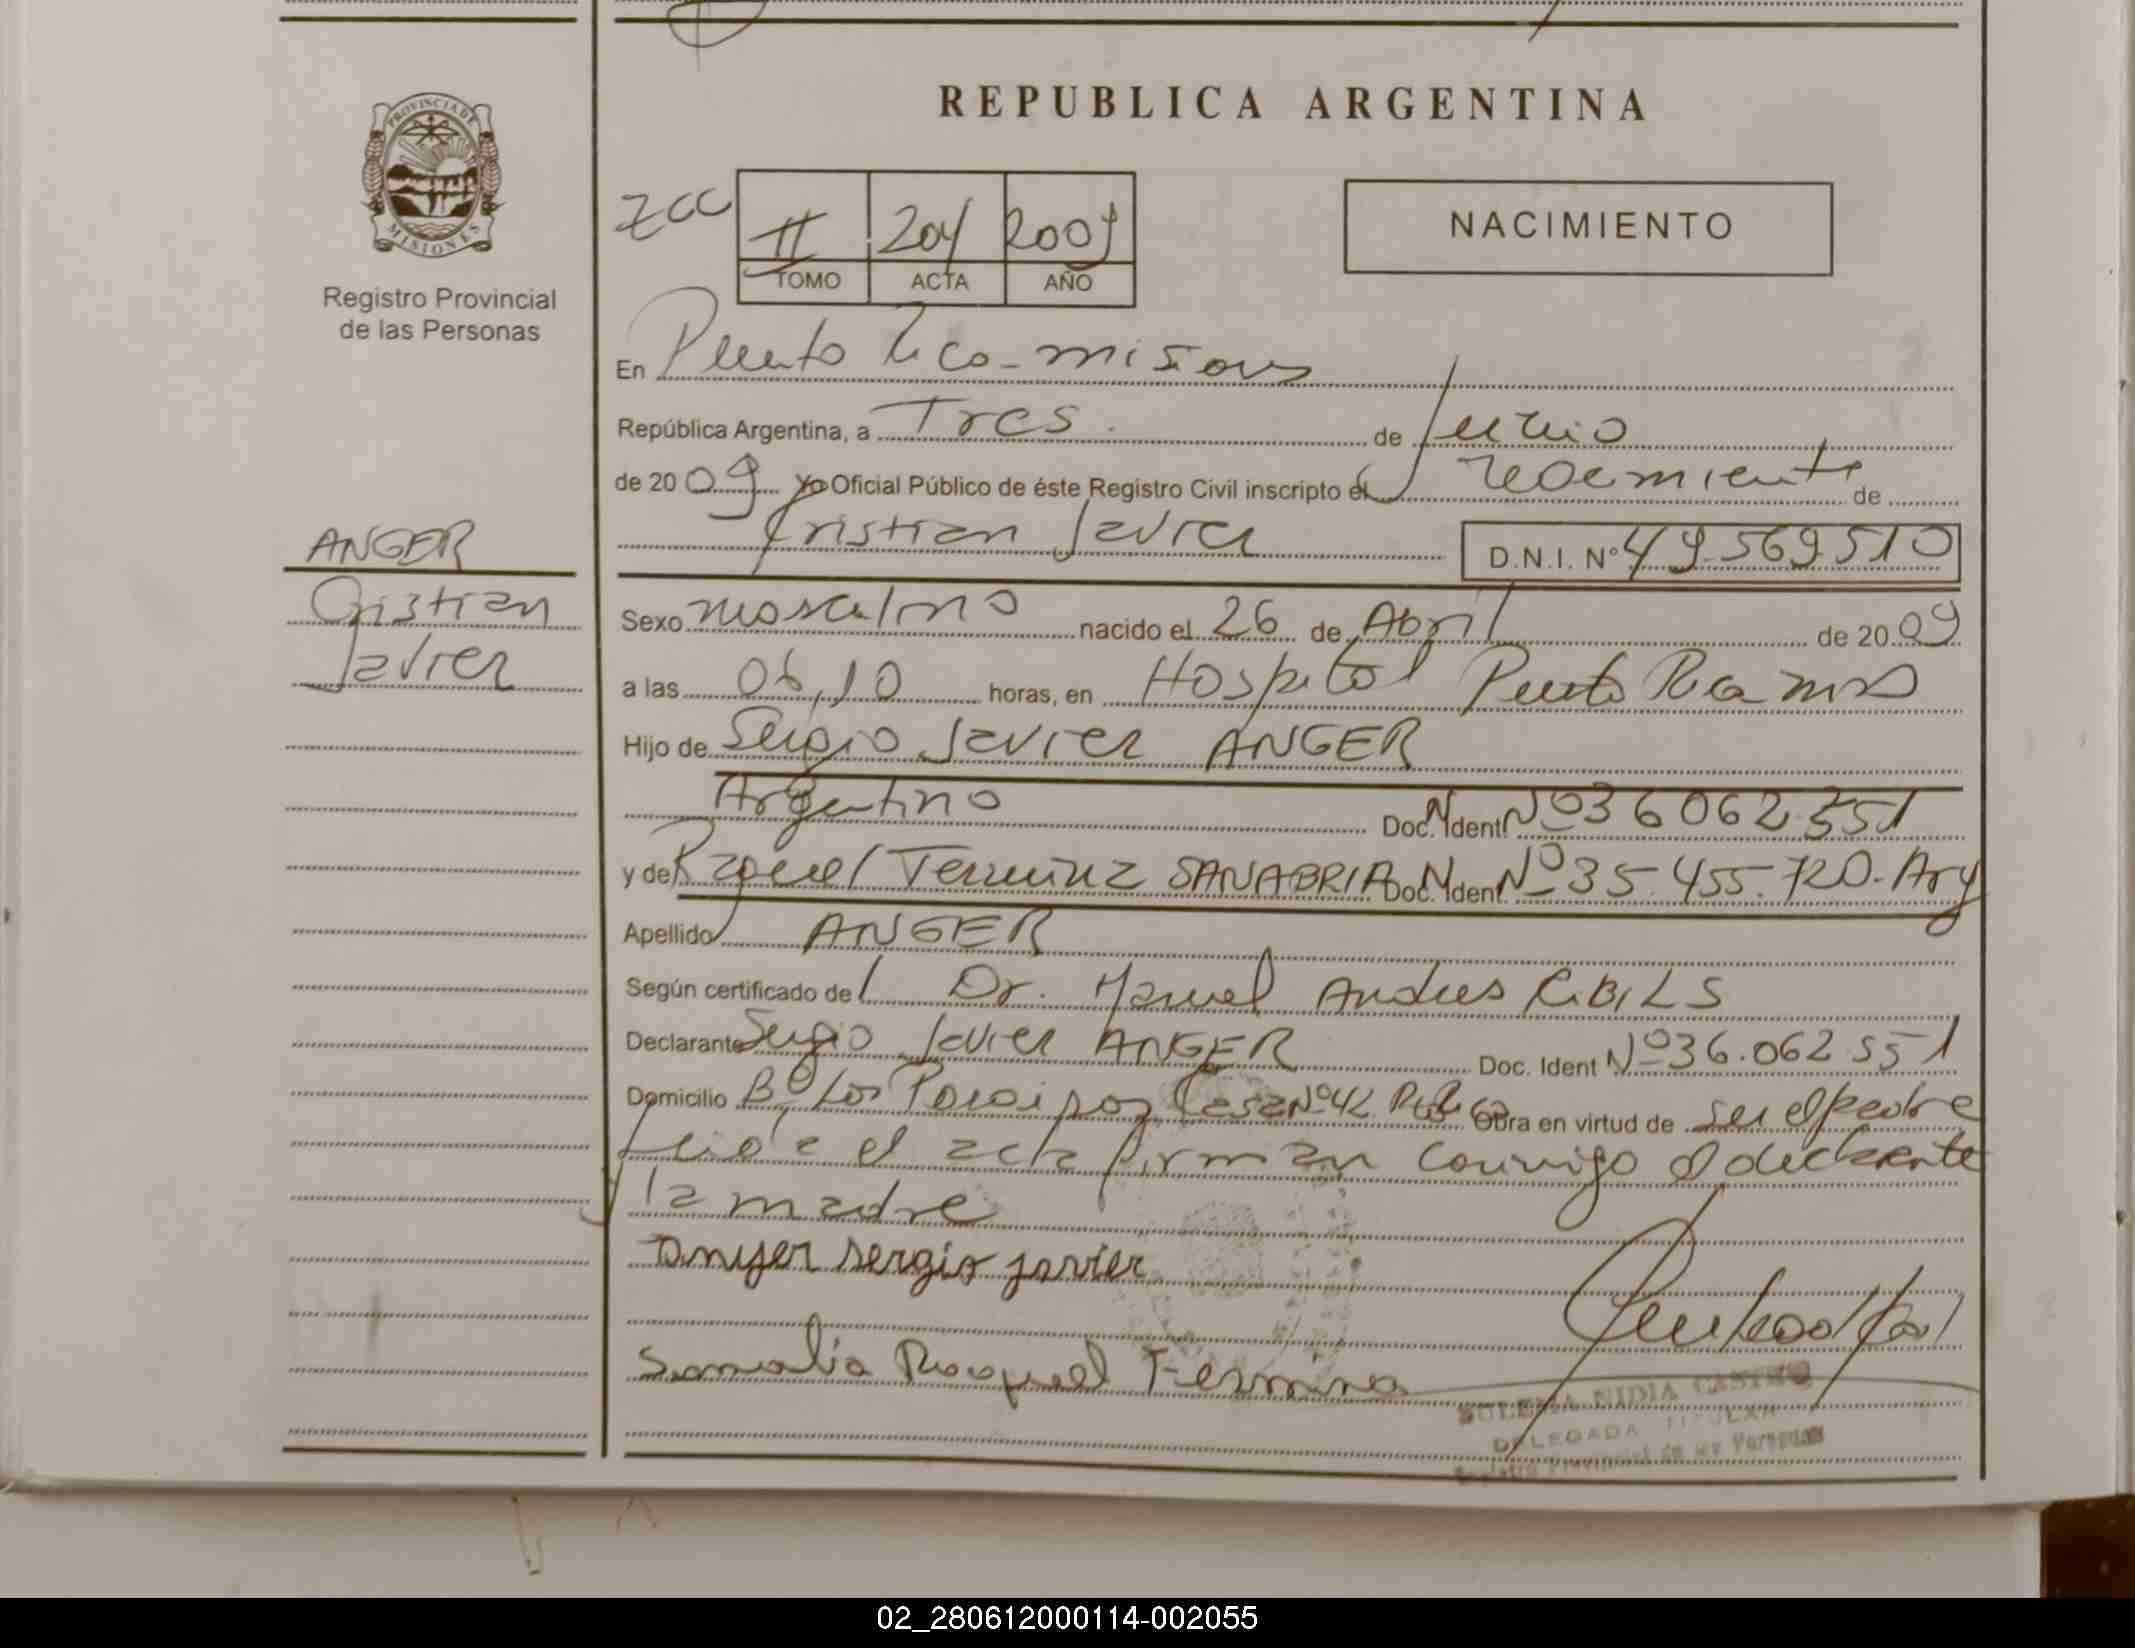 REPUBLICA ARGENTINA
PROVINCIA DE
MISIONES
Registro Provincial
de las Personas
II 204 2009
TOMO ACTA AÑO
NACIMIENTO
En Puerto Rico - Misiones
República Argentina, a Tres de Junio
de 20 09 Yo Oficial Público de éste Registro Civil inscripto el nacimiento de
Cristian Javier D.N.I. Nº 49.569.510
ANGER
Cristian
Javier
Sexo masculino nacido el 26 de Abril de 20 09
a las 06,10 horas, en Hospital Puerto Rico mns
Hijo de Sergio Javier ANGER
Argentino Doc. N. Ident. Nº 36.062.551
y de Raquel SANABRIA Doc. N. Ident. Nº 35.455.720. Arg
Apellido ANGER
Según certificado del Dr. Manuel Andres RIBILS
Declarante Sergio Javier ANGER Doc. Ident Nº 36.062.551
Domicilio Bº Los Paraisos Casa Nº 42 Pto Rico Obra en virtud de ser el padre
Leida el acta firman conmigo el declarante
y la madre
Anger sergio javier
Raquel
ZULEMA NIDIA CASTRO
DELEGADA TITULAR
Registro Provincial de las Personas
02_280612000114-002055